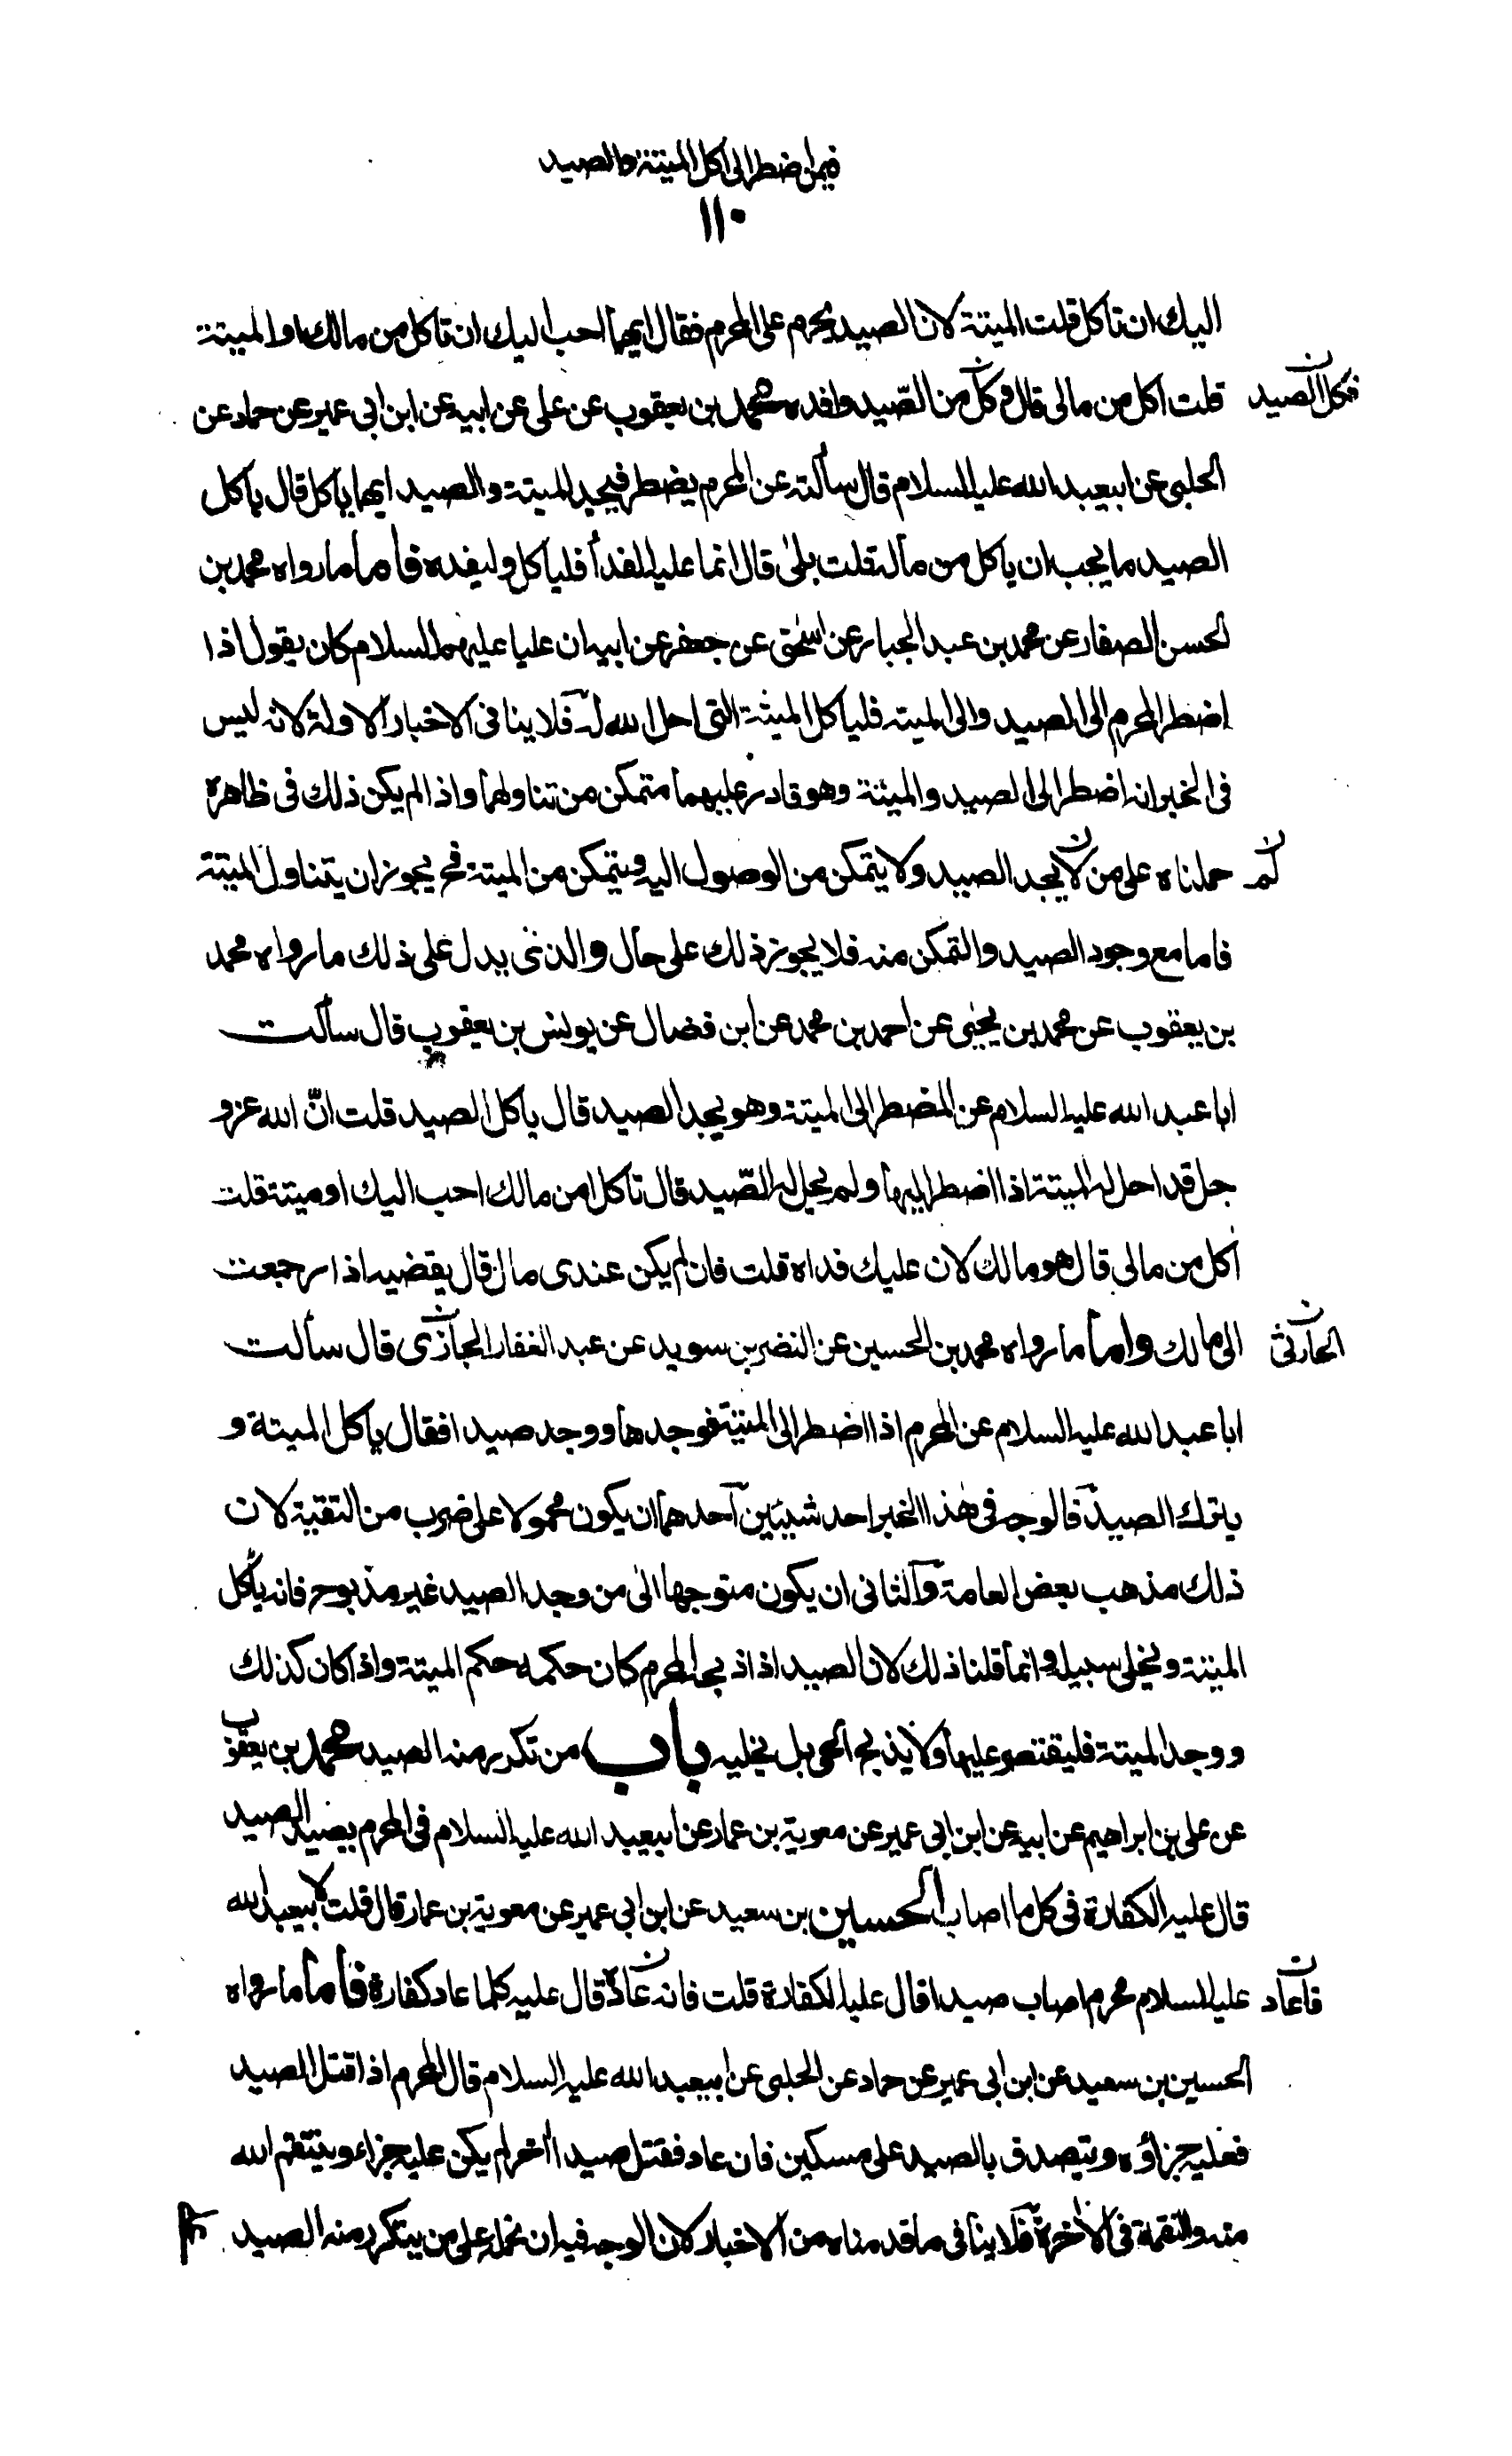 فيمن اضطر الى اكل الميتة والصيد
١١٠
اليك ان تاكل قلت الميتة لان الصيد يحرم على المحرم فقال ايهما احب اليك ان تاكل من مالك او الميتة
قلت اكل من مالى قال وكل من الصّيد وافده محمد بن يعقوب عن على عن ابيه عن ابن ابى عمير عن حماد عن
فكل الصيد ن
الحلبى عن ابيعبد الله عليه السلام قال سألته عن المحرم يضطر فيجد الميتة والصيد ايهما ياكل قال ياكل
الصيد ما يجب ان ياكل من ماله قلت بلى قال انما عليه الفدأ فلياكل وليفده فاما ما رواه محمد بن
لحسن الصفار عن محمد بن عبد الجبار عن اسحق عن جعفر عن ابيه ان عليا عليهما السلام كان يقول اذا
اضطر المحرم الى الصيد والى الميته فلياكل الميتة التى احل الله له فلا ينافى الاخبار الاولة لانه ليس
فى الخبر انه اضطر الى الصيد والميتة وهو قادر عليهما متمكن من تناولهما واذا لم يكن ذلك فى ظاهره
حملناه على من لا يجد الصيد ولا يتمكن من الوصول اليه ويتمكن من الميتة فح يجوز ان يتناول الميتة
لم ن
فاما مع وجود الصيد والتمكن منه فلا يجوز ذلك على حال والذى يدل على ذلك ما رواه محمد
بن يعقوب عن محمد بن يحيى عن احمد بن محمد عن ابن فضال عن يونس بن يعقوب قال سألت
ابا عبد الله عليه السلام عن المضطر الى الميتة وهو يجد الصيد قال ياكل الصيد قلت انّ الله عز و
جل قد احل له الميتة اذا اضطر اليها ولم يحل له الصّيد قال تاكل من مالك احب اليك او ميتة قلت
اكل من مالى قال هو مالك لان عليك فداه قلت فان لم يكن عندى مال قال يقضيه اذا رجعت
الى مالك واما ما رواه محمد بن الحسين عن النضر بن سويد عن عبد الغفار الجازى قال سألت
الحارثى ن
ابا عبد الله عليه السلام عن المحرم اذا اضطر الى الميتة فوجدها ووجد صيدا فقال ياكل الميتة و
يترك الصيد فالوجه فى هذا الخبر احد شيئين احدهما ان يكون محمولا على ضرب من التقية لان
ذلك مذهب بعض العامة والثانى ان يكون متوجها الى من وجد الصيد غير مذبوح فانه يأكل
الميتة ويخلى سبيله وانما قلنا ذلك لان الصيد اذا ذبحه المحرم كان حكمه حكم الميتة واذا كان كذلك
ووجد الميتة فليقتصر عليها ولا يذبح الحى بل يخليه باب من تكرر منه الصيد محمد بن يعقوب
عن على بن ابراهيم عن ابيه عن ابن ابى عمير عن معوية بن عمار عن ابيعبد الله عليه السلام فى المحرم يصيد الصيد
قال عليه الكفارة فى كل ما اصاب الحسين بن سعيد عن ابن ابى عمير عن معوية بن عمار قال قلت لابيعبد الله
عليه السلام محرم اصاب صيدا قال عليه الكفارة قلت فانه عاد قال عليه كلما عاد كفارة فاما ما رواه
فاعاد ن
الحسين بن سعيد عن ابن ابى عمير عن حماد عن الحلبى عن ابيعبد الله عليه السلام قال المحرم اذا قتل الصيد
فعليه جزاؤه ويتصدق بالصيد على مسكين فان عاد فقتل صيدا اخر لم يكن عليه جزاء وينتقم الله
منه والنقمة فى الاخرة فلا ينافى ما قدمناه من الاخبار لان الوجه فيه ان نحمله على من يتكرر منه الصيد